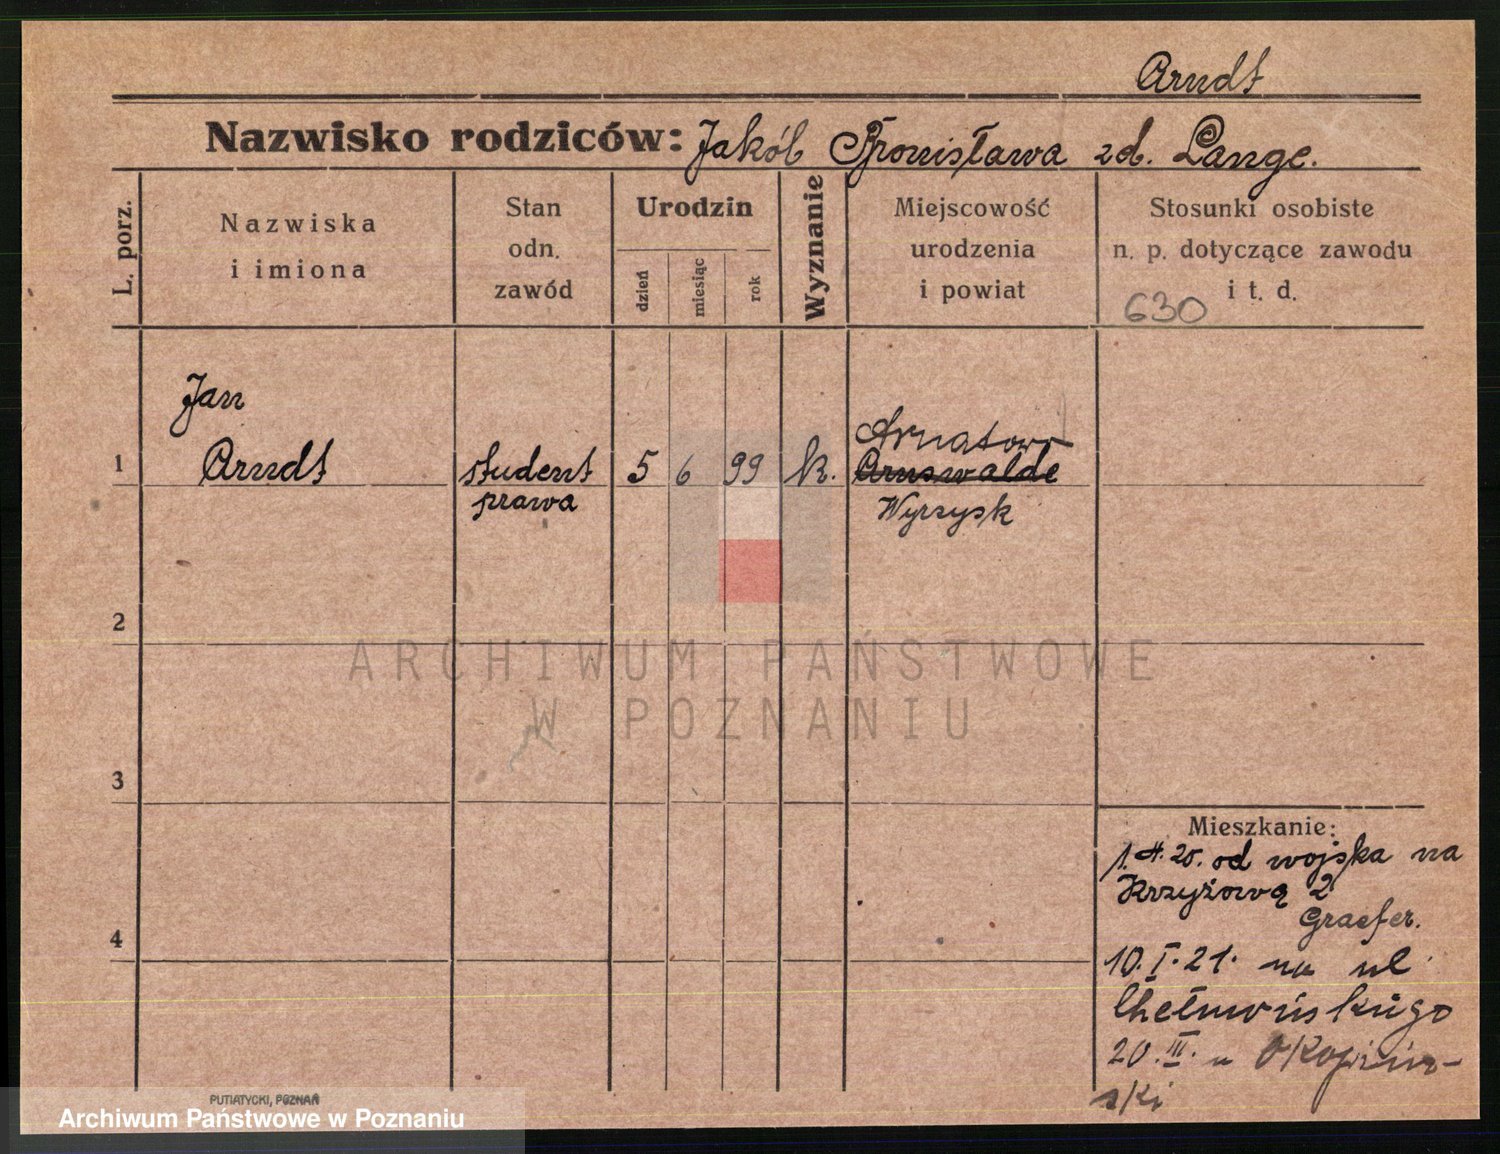 Arndt
Nazwisko rodziców: Jakób Bronisława zd. Lange.
L. porz.
Nazwiska
i imiona
Stan
odn.
zawód
Urodzin
dzień
miesiąc
rok
Wyznanie
Miejscowość
urodzenia
i powiat
Stosunki osobiste
n. p. dotyczące zawodu
i t. d.
630
Jan
1 Arndt student 5 6 99 k. Arnswalde
prawa
Wyrzysk
2
ARCHIWUM PAŃSTWOWE
W POZNANIU
3
Mieszkanie:
20. od wojska na
Krzyżową 2
Graefer.
4
10. I. 21. na ul
Chełmońskiego
20. III. u
ski
PUTIATYCKI, POZNAŃ
Archiwum Państwowe w Poznaniu